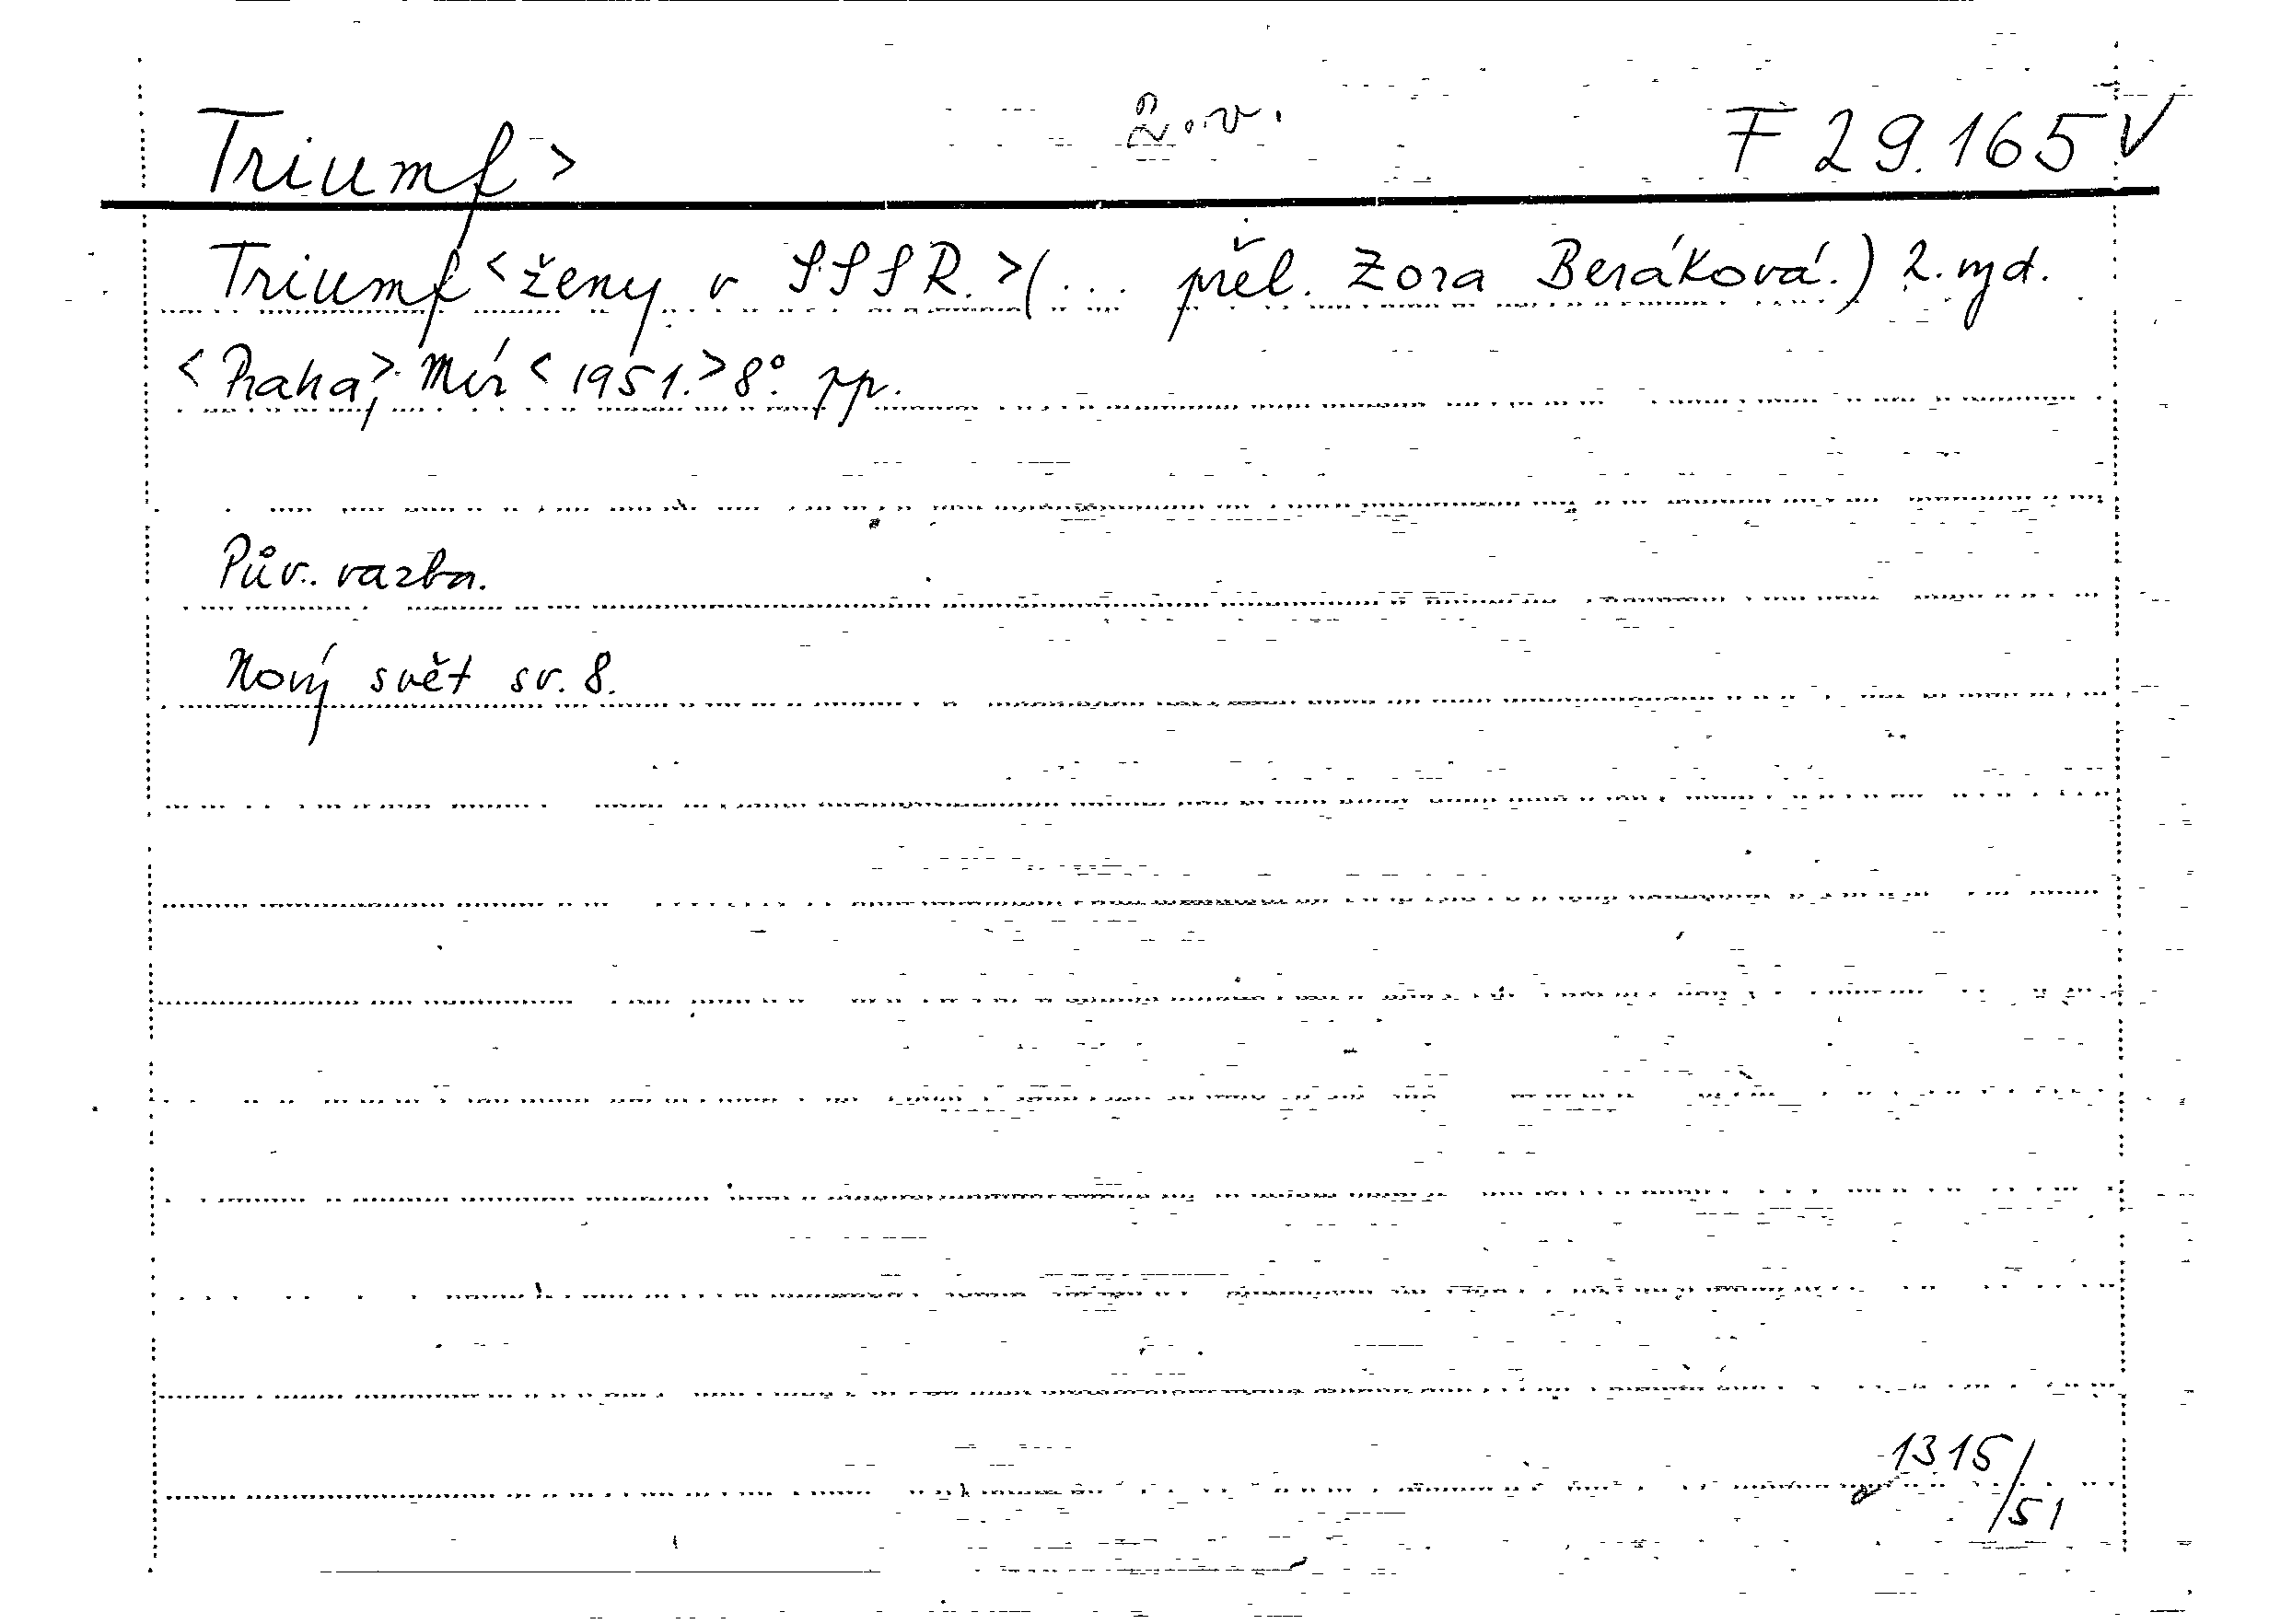 Triumf> 2.v. F 29.165 V
Triumf <ženy v SSSR.> (... přel. Zora Beráková.) 2. vyd.
<Praha>, Mír <1951.> 8°. pp.
Pův. vazba.
Nový svět sv. 8.
1315/51